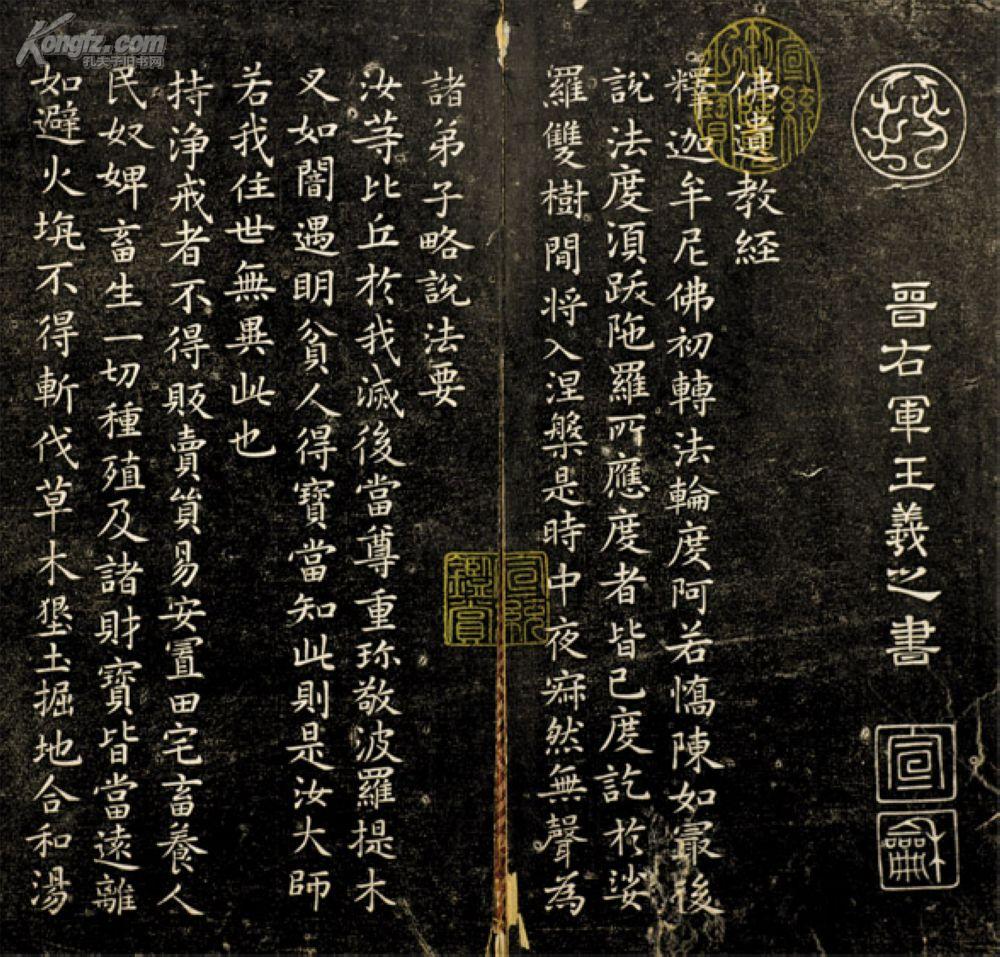 晉右軍王羲之書
宣
龢
佛遺教經
釋迦牟尼佛初轉法輪度阿若憍陳如冣後
說法度湏跋陁羅所應度者皆已度訖於娑
羅雙樹間将入涅槃是時中夜寂然無聲為
諸弟子略說法要
汝等比丘於我滅後當尊重珎敬波羅提木
叉如闇遇明貧人得寶當知此則是汝大師
若我住世無異此也
持浄戒者不得販賣貿易安置田宅畜養人
民奴婢畜生一切種殖及諸財寶皆當遠離
如避火坑不得斬伐草木墾土掘地合和湯
宣統
鑑賞
Kongfz.com
孔夫子旧书网